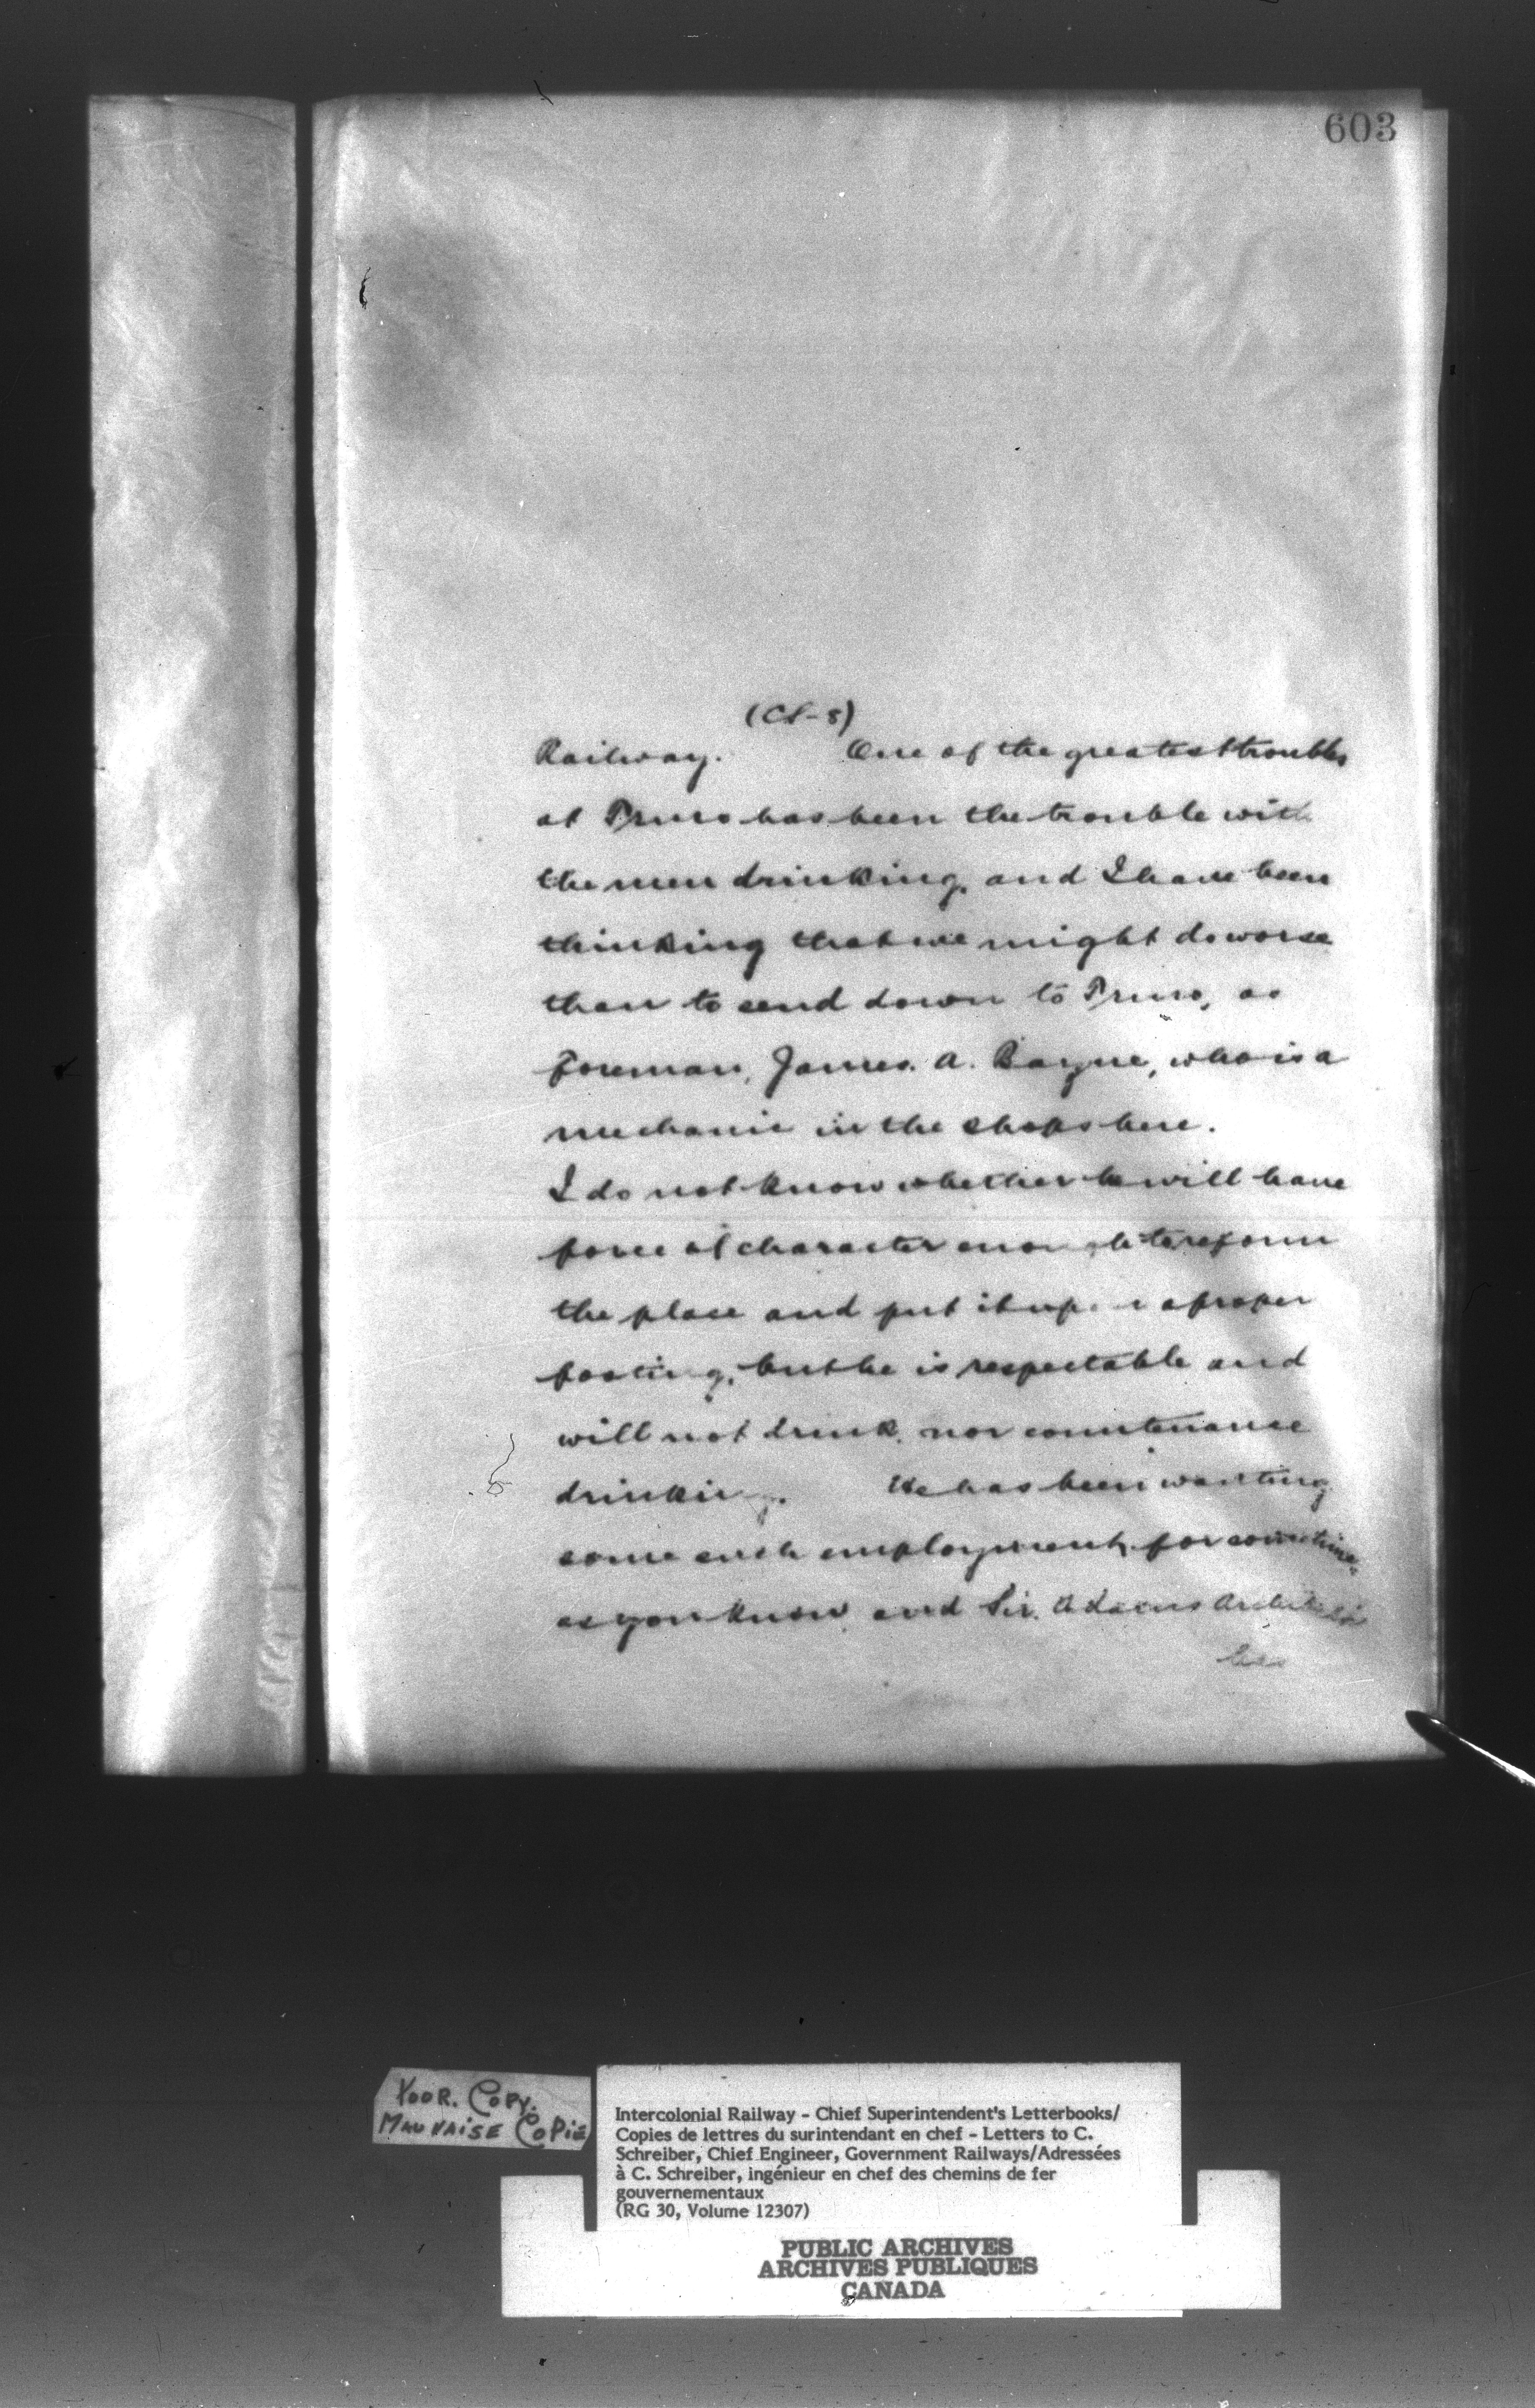 603
(CS-8)
Railway. One of the greatest troubles
at Truro has been the trouble with
the men drinking, and I have been
thinking that we might do worse
than to send down to Truro, as
Foreman, James. A. Bayne, who is a
mechanic in the shops here.
I do not know whether he will have
force of character enough to reform
the place and put it upon a proper
footing, but he is respectable and
will not drink, nor countenance
drinking. He has been wanting
some such employment, for sometime,
as you know and Sir. Adams Archibald
has
POOR. COPY.
MAUVAISE COPIE
Intercolonial Railway - Chief Superintendent's Letterbooks/
Copies de lettres du surintendant en chef - Letters to C.
Schreiber, Chief Engineer, Government Railways/Adressées
à C. Schreiber, ingénieur en chef des chemins de fer
gouvernementaux
(RG 30, Volume 12307)
PUBLIC ARCHIVES
ARCHIVES PUBLIQUES
CANADA